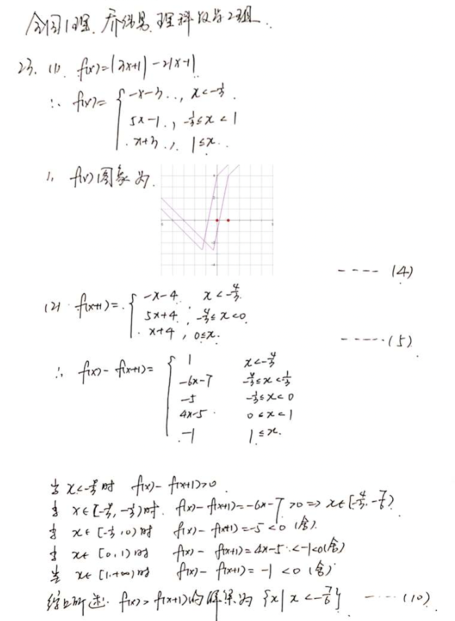 全国1理 理科数学2组
23. (1) f(x)=|3x+1|-2|x-1|
∴ f(x)= { -x-3 , x<-1/3
5x-1 , -1/3≤x<1
x+3 , 1≤x
∴ f(x)图象为
---- (4)
(2) f(x+1)= { -x-4 x<-4/3
5x+4 , -4/3≤x<0
x+4 , 0≤x.
-----(5)
∴ f(x)-f(x+1)= { 1 x<-4/3
-6x-7 -4/3≤x<-1/3
-5 -1/3≤x<0
4x-5 0≤x<1
-1 1≤x.
当 x<-4/3 时 f(x)-f(x+1)>0
当 x∈[-4/3,-1/3)时. f(x)-f(x+1)=-6x-7>0 => x∈[-4/3,-7/6)
当 x∈[-1/3,0)时 f(x)-f(x+1)=-5<0 (舍)
当 x∈[0,1)时 f(x)-f(x+1)=4x-5<-1<0(舍)
当 x∈[1,+∞)时 f(x)-f(x+1)=-1<0 (舍)
综上所述. f(x)>f(x+1)的解集为 {x|x<-7/6} ----(10)